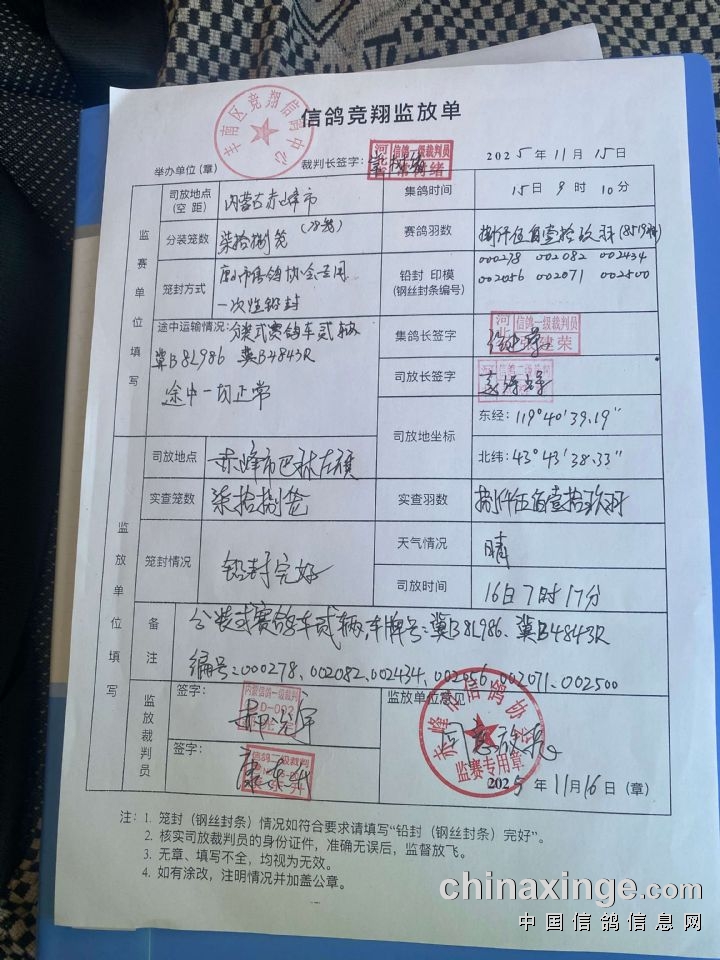 信鸽竞翔监放单
丰南区竞翔信鸽中心
举办单位(章) 裁判长签字: 2025年11月15日
河北 信鸽一级裁判员
监赛单位填写
司放地点(空距) 内蒙古赤峰市 集鸽时间 15日9时10分
分装笼数 柒拾捌笼(78笼) 赛鸽羽数 捌仟伍佰壹拾玖羽(8519羽)
笼封方式 唐山市信鸽协会专用一次性铅封 铅封 印模(钢丝封条编号) 000278 002082 002434
002056 002071 002500
途中运输情况:分装式赛鸽车贰辆
冀B8L986 冀B4843R
途中一切正常
集鸽长签字 河北 信鸽一级裁判员
司放长签字
司放地坐标 东经:119°40'39.19"
北纬:43°43'38.33"
监放单位填写
司放地点 赤峰市巴林左旗
实查笼数 柒拾捌笼 实查羽数 捌仟伍佰壹拾玖羽
笼封情况 铅封完好 天气情况 晴
司放时间 16日7时17分
备注 分装式赛鸽车贰辆,车牌号:冀B8L986、冀B4843R
编号:000278、002082、002434、002056、002071、002500
监放裁判员 签字: 内蒙信鸽一级裁判
签字: 信鸽二级裁判
监放单位意见
同意放飞
赤峰市信鸽协会
监赛专用章
2025年11月16日(章)
注:1. 笼封(钢丝封条)情况如符合要求请填写“铅封(钢丝封条)完好”。
2. 核实司放裁判员的身份证件,准确无误后,监督放飞。
3. 无章、填写不全,均视为无效。
4. 如有涂改,注明情况并加盖公章。
chinaxinge.com
中国信鸽信息网